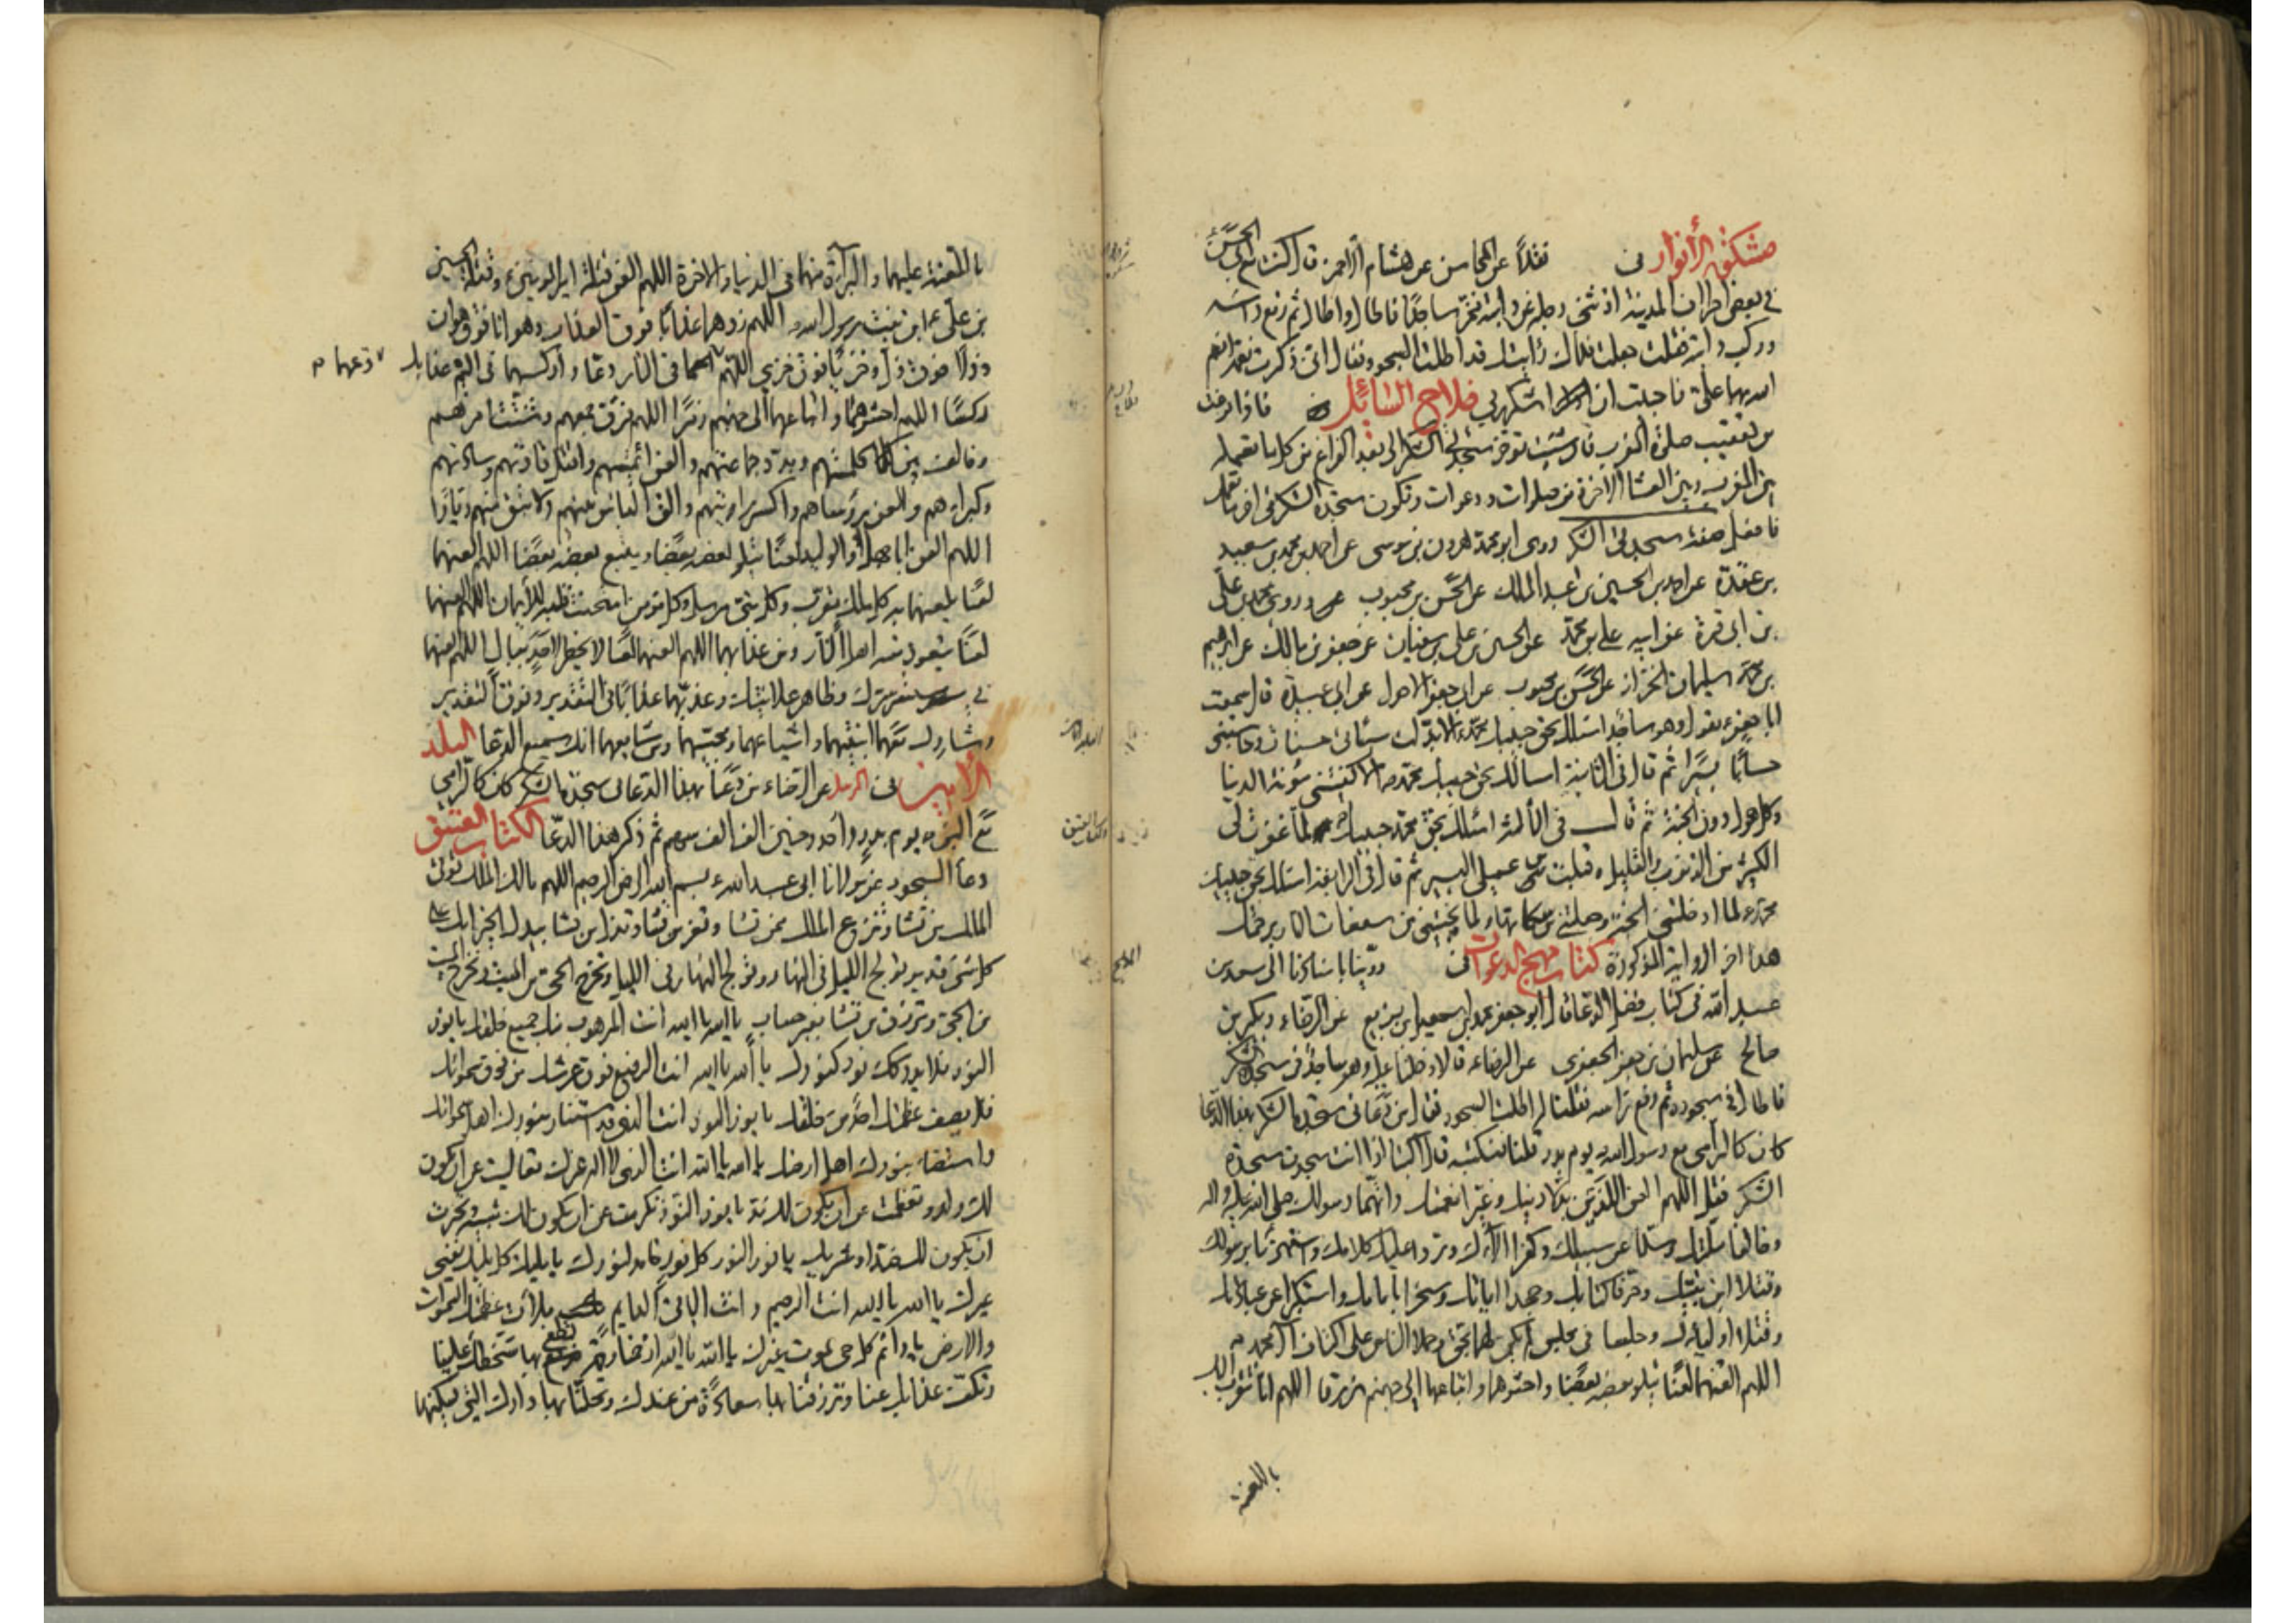 مشكوة الأنوار نقلاً عن المحاسن عن هشام الأحمر قال كنت مع أبي الحسن
في بعض اطراف المدينة اذ ثنى رجله عن دابته فخر ساجدًا فاطال واطال ثم رفع راسه
وركب دابته فقلت جعلت فداك رأيتك قد اطلت السجود فقال انى ذكرت نعمة انعم
الله بها على فاحببت ان اشكر ربي فلاح السائل فاذا فرغت
من تعقيب صلوة المغرب الشكر الى بعد الفراغ من كل ما تعمله
بين المغرب وبين العشاء الاخرة من صلوات ودعوات وتكون سجدة الشكر في اخر
صفة سجدتى الشكر روى ابو محمد هرون بن موسى عن احمد بن محمد بن سعيد
بن عقدة عن احمد بن الحسين بن عبد الملك عن الحسن بن محبوب وروى محمد بن علي
بن ابى قرة عن ابيه علي بن محمد عن الحسين بن علي بن سفيان عن جعفر بن مالك عن ابرهيم
بن سليمان الخزاز عن الحسن بن محبوب عن ابى جعفر الاحول عن ابى عبيدة قال سمعت
ابا جعفر ع يقول وهو ساجد اسئلك بحق حبيبك محمد الا بدلت سيئاتى حسنات وحاسبتنى
حسابًا يسيرًا ثم قال فى الثانية اسالك بحق حبيبك محمد ص الا كفيتنى مؤنة الدنيا
وكل هول دون الجنة ثم قال فى الثالثة اسئلك بحق محمد حبيبك لما غفرت لى
الكثير من الذنوب والقليل وقبلت منى عملى اليسير ثم قال فى الرابعة اسئلك بحق حبيبك
محمد لما ادخلتنى الجنة وجعلتنى من سكانها ولما نجيتنى من سفعات النار برحمتك
هذا اخر الرواية المذكورة كتاب مهج الدعوات روينا باسنادنا الى سعد بن
عبد الله فى كتاب فضل الدعا قال ابو جعفر محمد بن اسمعيل بن بزيع عن الرضا ع وبكر بن
صالح عن سليمان بن جعفر الجعفرى عن الرضا ع قالا دخلنا عليه وهو ساجد فى سجدة الشكر
فاطال فى سجوده ثم رفع راسه فقلنا له اطلت السجود فقال من دعا فى سجدة الشكر بهذا الدعا
كان كالرامى مع رسول الله ص يوم بدر قلنا فنكتبه قال اكتبا اذا انت سجدت سجدة
الشكر فقل اللهم العن اللذين بدلا دينك وغيرا نعمتك واتهما رسولك صلى الله عليه واله
وخالفا ملتك وصدا عن سبيلك وكفرا الاءك وردا عليك كلامك واستهزءا برسولك
وقتلا ابن نبيك وحرفا كتابك وجحدا اياتك وسخرا باياتك واستكبرا عن عبادتك
وقتلا اولياءك وجلسا فى مجلس لم يكن لهما بحق وحملا الناس على اكتاف ال محمد
اللهم العنهما لعنًا يتلو بعضه بعضًا واحشرهما واتباعهما الى جهنم زرقا اللهم انا نتقرب اليك
باللعنة
باللعنة عليهما والبرآءة منهما فى الدنيا والاخرة اللهم العن قتلة امير المومنين ع وقتلة الحسين
بن على ع ابن بنت رسول الله اللهم زدهما عذابًا فوق العذاب وهوانا فوق هوان
وذلًا فوق ذل وخزيًا فوق خزى اللهم دعهما فى النار دعًا واركسهما فى اليم عذابك
ركسًا اللهم احشرهما واتباعهما الى جهنم زمرًا اللهم فرق جمعهم وشتت امرهم
وخالف بين كلمتهم وبدد جماعتهم والعن ائمتهم واقتل قادتهم وسادتهم
وكبراءهم والعن رؤساهم واكسر رايتهم والق الباس بينهم ولا تبق منهم ديارًا
اللهم العن ابا جهل والوليد لعنًا يتلو بعضه بعضًا ويتبع بعضه بعضًا اللهم العنهما
لعنًا يلعنهما به كل ملك مقرب وكل نبى مرسل وكل مومن امتحنت قلبه للايمان اللهم العنهما
لعنًا يتعوذ منه اهل النار ومن عذابهما اللهم العنهما لعنًا لا يخطر لاحد ببال اللهم العنهما
فى مستسر سرك وظاهر علانيتك وعذبهما عذابًا فى التقدير وفوق التقدير
وشارك معهما ابنتيهما واشياعهما ومحبيهما ومن شايعهما انك سميع الدعا البلد
الأمين عن الرضا ع من دعا بهذا الدعا فى سجدة الشكر كان كالرامى
مع النبي ص يوم بدر واحد وحنين الف الف سهم ثم ذكر هذا الدعا الكتاب العتيق
دعا السجود عن مولانا ابى عبد الله ع بسم الله الرحمن الرحيم اللهم مالك الملك تؤتى
الملك من تشا وتنزع الملك ممن تشا وتعز من تشا وتذل من تشا بيدك الخير انك على
كل شىء قدير تولج الليل فى النهار وتولج النهار فى الليل وتخرج الحى من الميت وتخرج الميت
من الحى وترزق من تشا بغير حساب يا الله يا الله انت المرهوب منك جميع خلقك يا نور
النور فلا يدرك نور كنورك يا الله يا الله انت الرفيع فوق عرشك من فوق سمواتك
فلا يصف عظمتك احد من خلقك يا نور النور انت الذى قد استنار بنورك اهل سمواتك
واستضاء بنورك اهل ارضك يا الله يا الله انت الذى لا اله غيرك تعاليت عن ان يكون
لك ولد وتعظمت عن ان يكون لك ند يا نور النور تكرمت عن ان يكون لك شبيه وتجبرت
ان يكون لك ضد او شريك يا نور النور كل نور خامد لنورك يا مليك كل مليك يفنى
غيرك يا الله يا الله انت الرحيم وانت الباقى الدايم ملأت عظمتك السموات
والارض يا دائم كل حى يموت غيرك يا الله يا الله ارحمنا رحمة تطفئ بها سخطك علينا
وتكف عذابك عنا وترزقنا بها سعادة من عندك وتحلنا بها دارك التى يسكنها